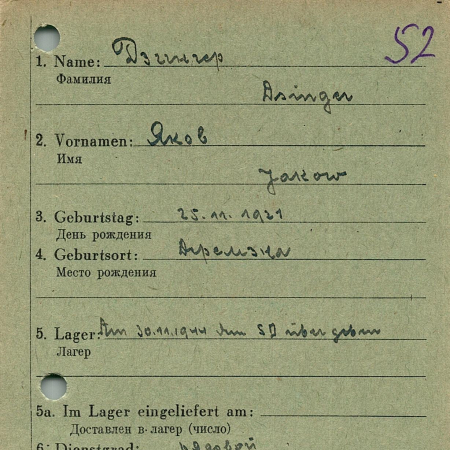 52
1. Name: Дзингер
Фамилия
Dsinger
2. Vornamen: Яков
Имя
Jakow
3. Geburtstag: 25.11.1921
День рождения
4. Geburtsort:
Место рождения
5. Lager: Am 30.11.1944 dem SD übergeben
Лагер
5a. Im Lager eingeliefert am:
Доставлен в лагер (число)
6. Dienstgrad: рядовой